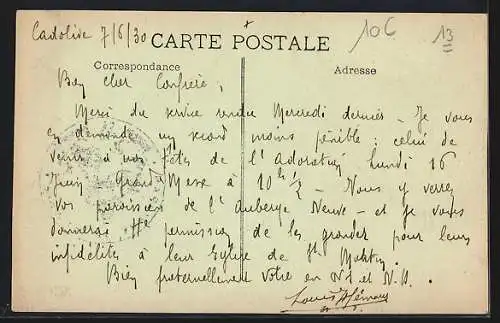 Cadolive 7/6/30
10C
13
CARTE POSTALE
Correspondance
Adresse
Bien cher Confrère,
Merci du service rendu Mercredi dernier - Je vous
en demande un second moins pénible : celui de
venir à nos fêtes de l'Adoration lundi 16
Juin Grand Messe à 10h 1/2 - Vous y verrez
vos paroissiens de l'Auberge Neuve - et je vous
donnerai permission de les gronder pour leurs
infidélités à leur Eglise de St
Bien fraternellement votre en N.S. et N.D.
Louis